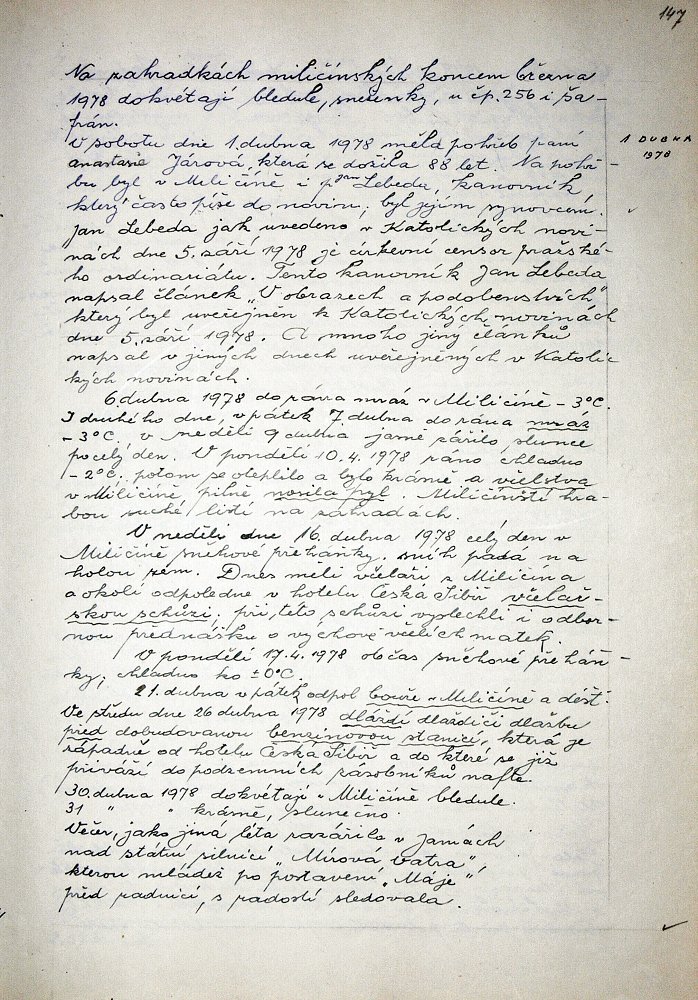 147
Na zahradkách miličínských koncem března
1978 dokvétají bledule, sněženky, u čp. 256 i ša-
frán.
1 DUBNA
1978
V sobotu dne 1. dubna 1978 měla pohřeb paní
Anastasie Járová, která se dožila 88 let. Na pohř-
bu byl v Miličíně i pan Lebeda, kanovník,
který často píše do novin, byl jejím synovcem.
Jan Lebeda jak uvedeno v Katolických novi-
nách dne 5. září 1978 je církevní censor pražské-
ho ordinariátu. Tento kanovník Jan Lebeda
napsal článek „V obrazech a podobenstvích"
který byl uveřejněn k Katolických novinách
dne 5. září 1978. A mnoho jiný článků
napsal v jiných dnech uveřejněných v Katolic-
kých novinách.
6 dubna 1978 do rána mráz v Miličíně – 3°C.
I druhého dne, v pátek 7. dubna do rána mráz
– 3°C. v neděli 9 dubna jarně zářilo slunce
po celý den. V pondělí 10.4.1978 ráno chladno
– 2°C. potom se oteplilo a bylo krásně a včelstva
v Miličíně pilně nosila pyl. Miličínští hra-
bou suché listí na zahradách.
V neděli dne 16. dubna 1978 celý den v
Miličíně sněhové přeháňky. sníh padá na
holou zem. Dnes měli včelaři z Miličína
a okolí odpoledne v hotelu Česká Sibiř včelař-
skou schůzi; při této schůzi vyslechli i odbor-
nou přednášku o výchově včelích matek.
V pondělí 17.4.1978 občas sněhové přeháň-
ky, chladno ko ±0°C.
21. dubna v pátek odpol bouře v Miličíně a déšť.
Ve středu dne 26 dubna 1978 dláždí dlaždiči dlažbu
před dobudovanou benzinovou stanicí, která je
západně od hotelu Česká Sibiř a do které se již
přiváží do podzemních zásobníků nafte.
30. dubna 1978 dokvétají v Miličíně bledule.
31 " " krásně, slunečno.
Večer, jako jiná léta zazářila v Jamách
nad státní silnicí „Mírová vatra",
kterou mládež po postavení „Máje"
před radnicí, s radostí sledovala.